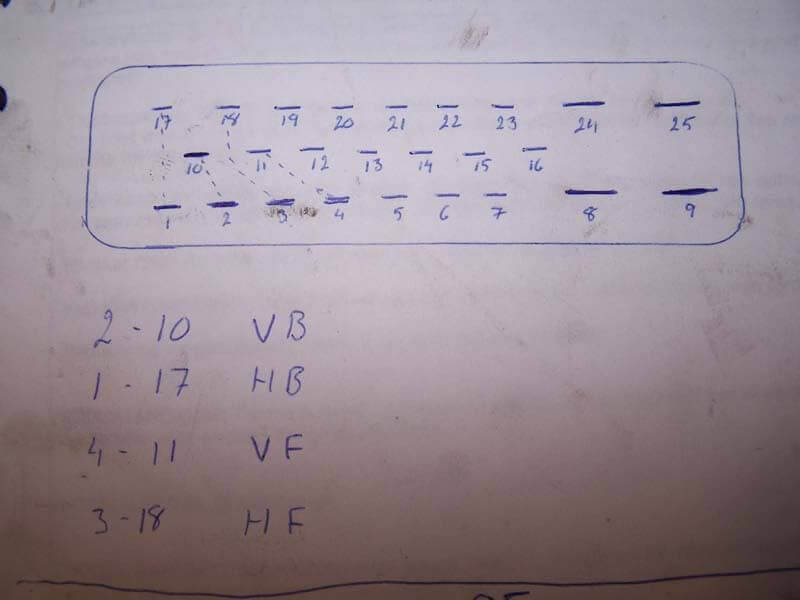 17 18 19 20 21 22 23 24 25
10 11 12 13 14 15 16
1 2 3 4 5 6 7 8 9
2 - 10 VB
1 - 17 HB
4 - 11 VF
3 - 18 HF